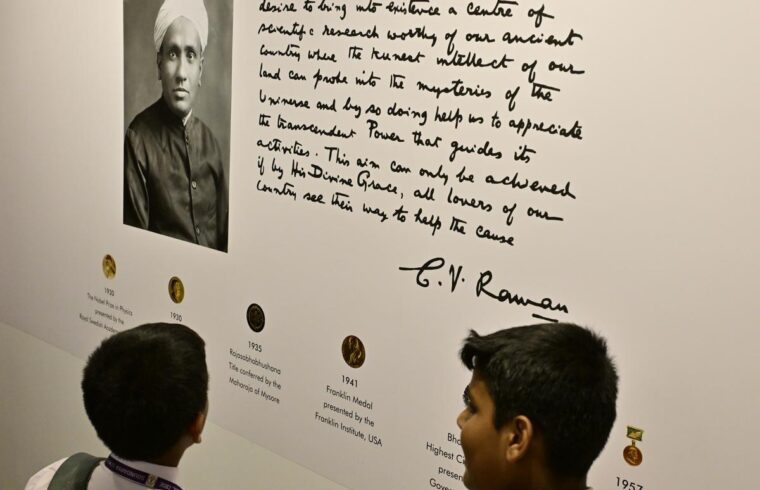 desire to bring into existence a centre of
scientific research worthy of our ancient
country where the keenest intellect of our
land can probe into the mysteries of the
Universe and by so doing help us to appreciate
the transcendent Power that guides its
activities. This aim can only be achieved
if by His Divine Grace, all lovers of our
country see their way to help the cause
C. V. Raman
1930
The Nobel Prize in Physics
presented by the
Royal Swedish Academy
1930
1935
Rajasabhabhushana
Title conferred by the
Maharaja of Mysore
1941
Franklin Medal
presented by the
Franklin Institute, USA
Bha
Highest Ci
presen
Gove
1957